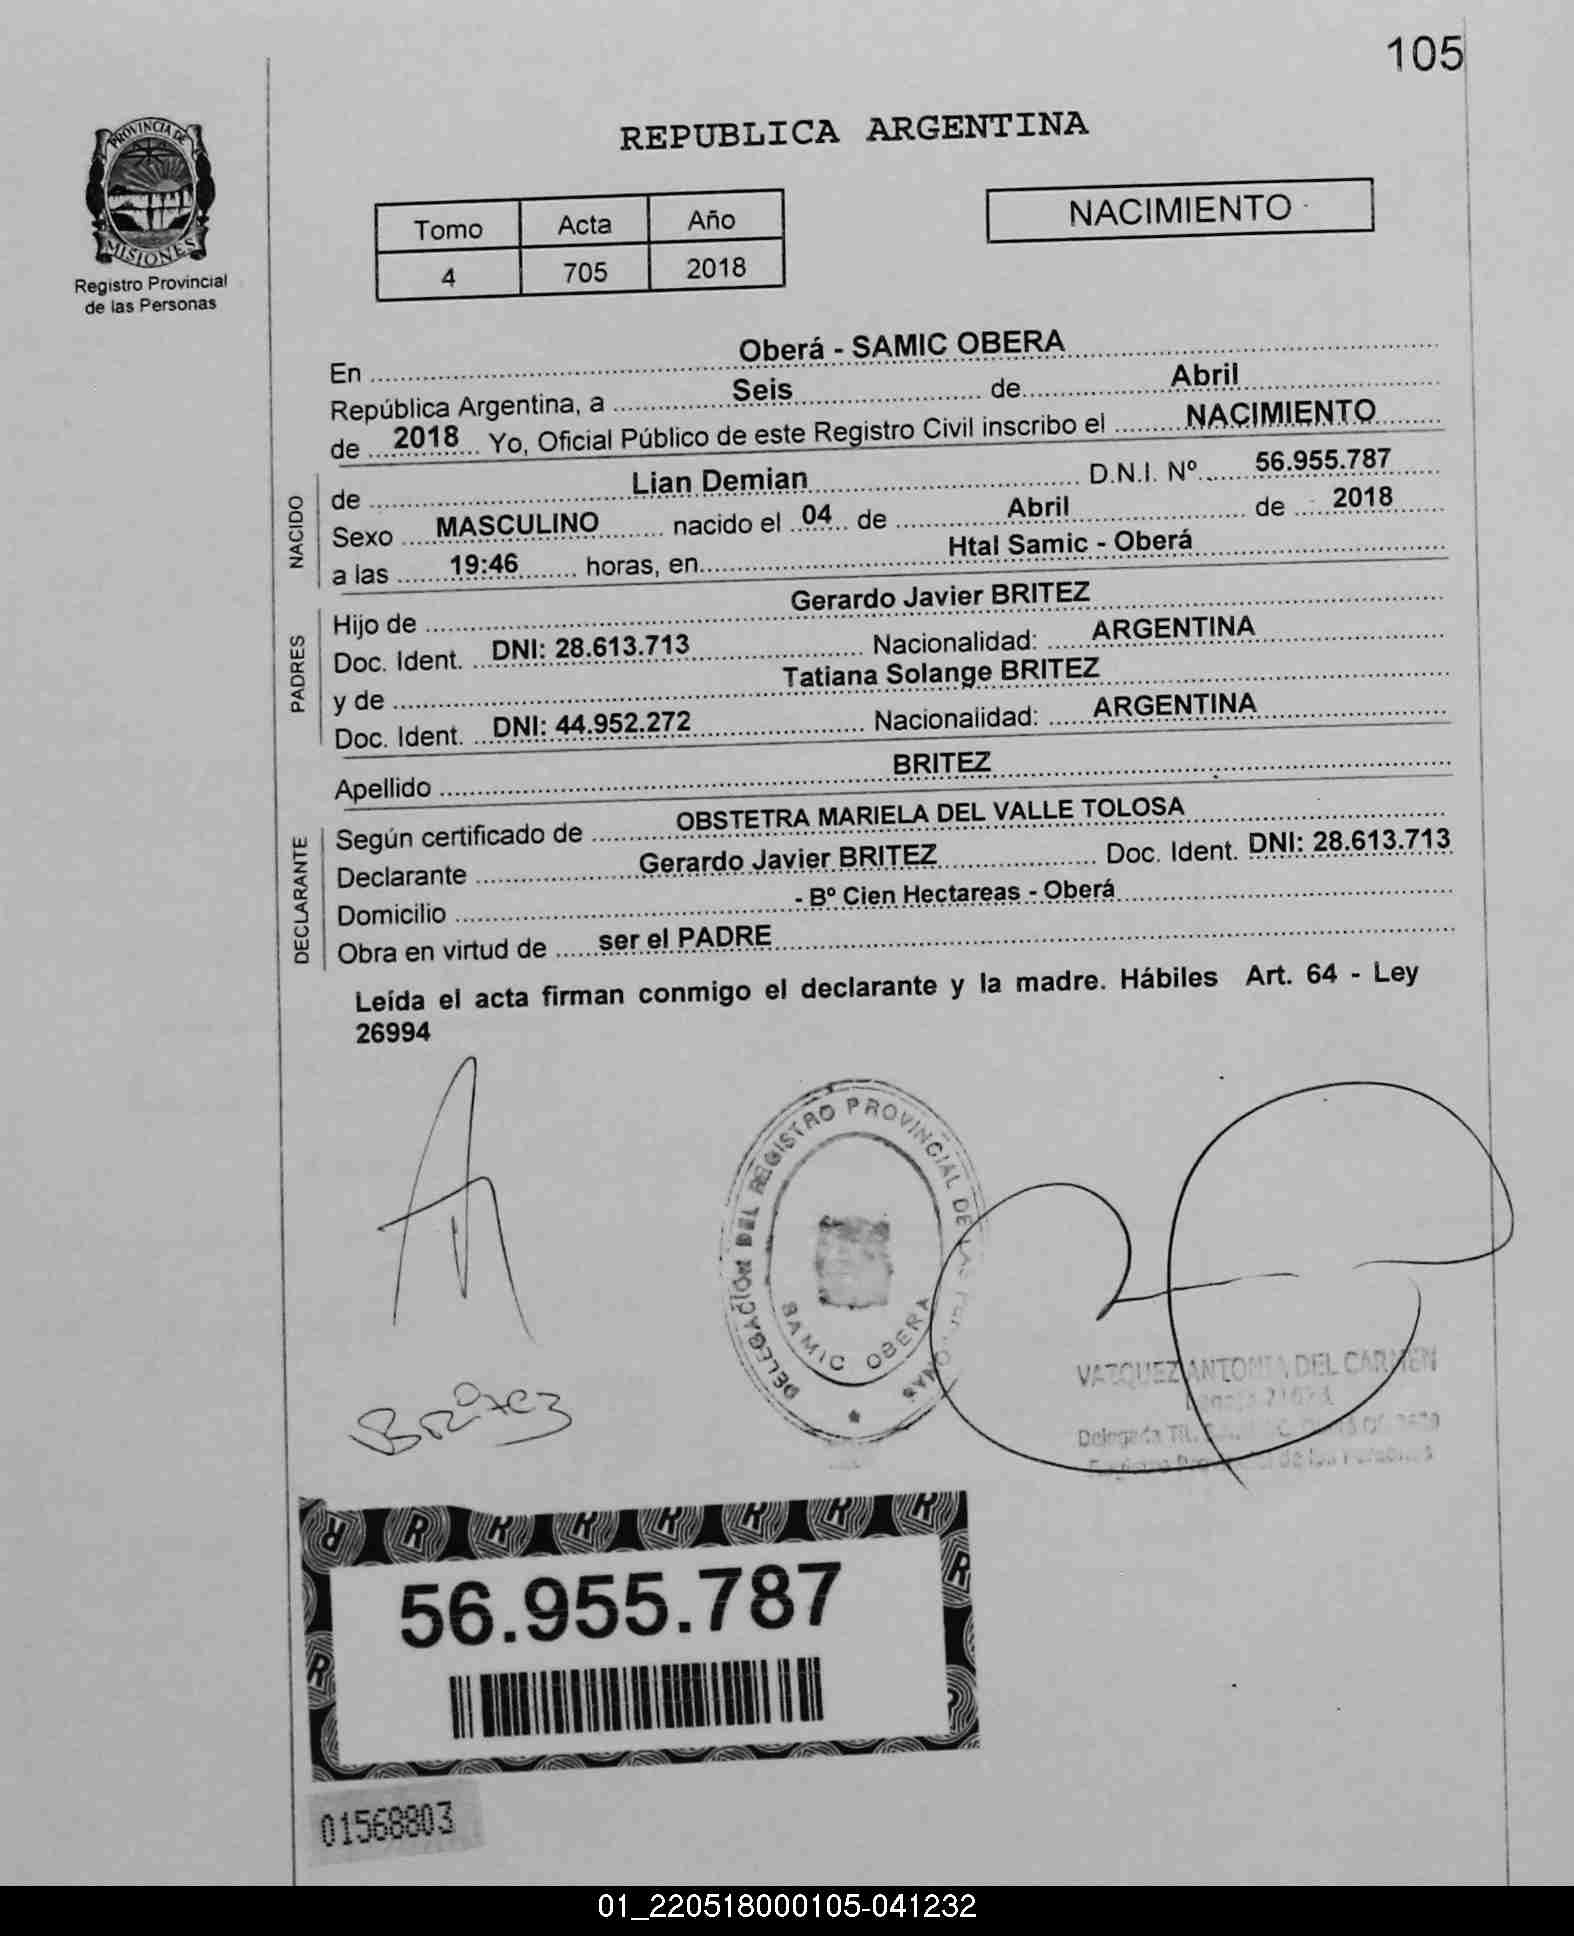 105
PROVINCIA DE
MISIONES
Registro Provincial
de las Personas
REPUBLICA ARGENTINA
Tomo Acta Año
4 705 2018
NACIMIENTO
En Oberá - SAMIC OBERA
República Argentina, a Seis de Abril
de 2018 Yo, Oficial Público de este Registro Civil inscribo el NACIMIENTO
NACIDO
de Lian Demian D.N.I. Nº 56.955.787
Sexo MASCULINO nacido el 04 de Abril de 2018
a las 19:46 horas, en Htal Samic - Oberá
PADRES
Hijo de Gerardo Javier BRITEZ
Doc. Ident. DNI: 28.613.713 Nacionalidad: ARGENTINA
y de Tatiana Solange BRITEZ
Doc. Ident. DNI: 44.952.272 Nacionalidad: ARGENTINA
Apellido BRITEZ
DECLARANTE
Según certificado de OBSTETRA MARIELA DEL VALLE TOLOSA
Declarante Gerardo Javier BRITEZ Doc. Ident. DNI: 28.613.713
Domicilio - Bº Cien Hectareas - Oberá
Obra en virtud de ser el PADRE
Leída el acta firman conmigo el declarante y la madre. Hábiles Art. 64 - Ley
26994
DELEGACIÓN DEL REGISTRO PROVINCIAL DE LAS PERSONAS
SAMIC OBERA
Britez
VAZQUEZ ANTONIA DEL CARMEN
Delegada
de las Personas
56.955.787
01568803
01_220518000105-041232